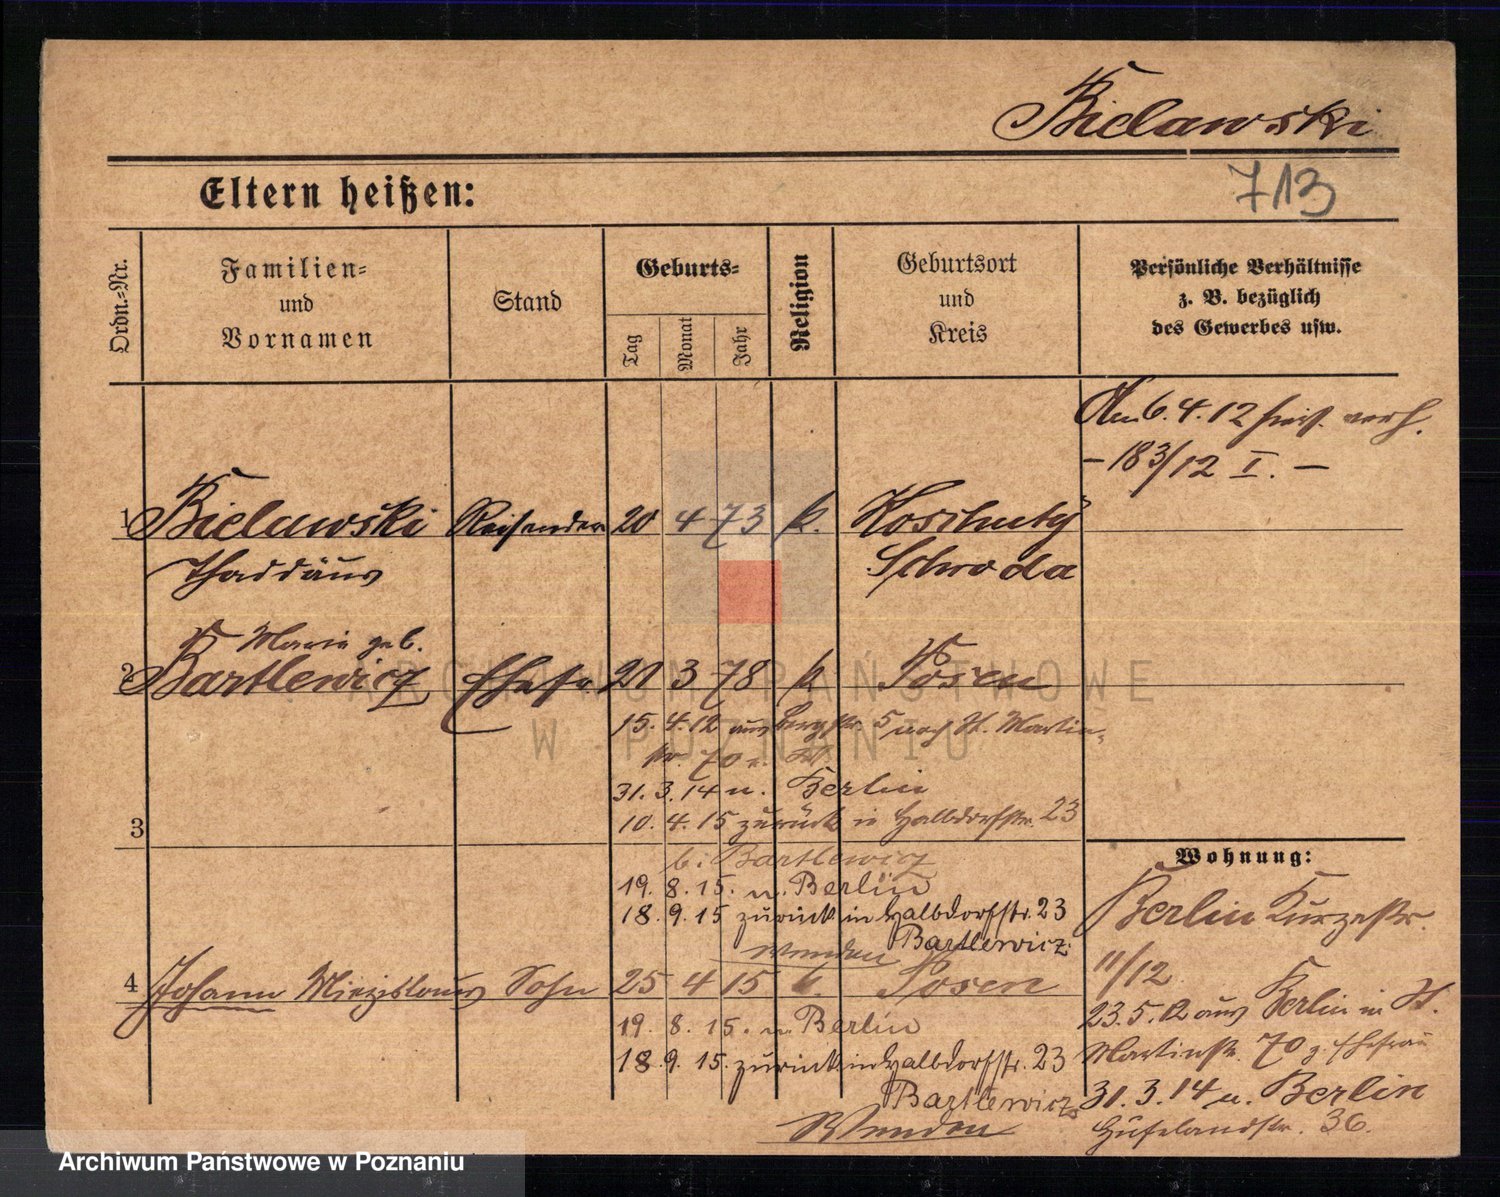 Bielawski
Eltern heißen:
713
Ordn.=Nr.
Familien=
und
Vornamen
Stand
Geburts=
Tag
Monat
Jahr
Religion
Geburtsort
und
Kreis
Persönliche Verhältnisse
z. B. bezüglich
des Gewerbes usw.
Am 6.4.12 verh.
– 183/12 I. –
1 Bielawski Reisender 20 4 73 k. Kosciuty
Thaddäus Schroda
Maria geb.
2 Bartlewicz Ehefr 21 3 78 k Posen
15. 4. 12 aus Bergstr. 5 nach St. Martin=
str. 70
31. 3. 14 n. Berlin
10. 4. 15 zurück in Halbdorfstr. 23
3
b. Bartlewicz
19. 8. 15. n. Berlin
18. 9. 15 zurück in Halbdorfstr. 23
Bartlewicz.
Wenden
4 Johann Miezislaus Sohn 25 4 15 k. Posen
19. 8. 15. n. Berlin
18. 9. 15. zurück in Halbdorfstr. 23
Bartlewicz
Wenden
Wohnung:
Berlin Kurzestr.
11/12
23.5.12 aus Berlin in St.
Martinstr. 70 z. Ehefrau
31. 3. 14 n. Berlin
Hufelandstr. 36.
ARCHIWUM PAŃSTWOWE
W POZNANIU
Archiwum Państwowe w Poznaniu